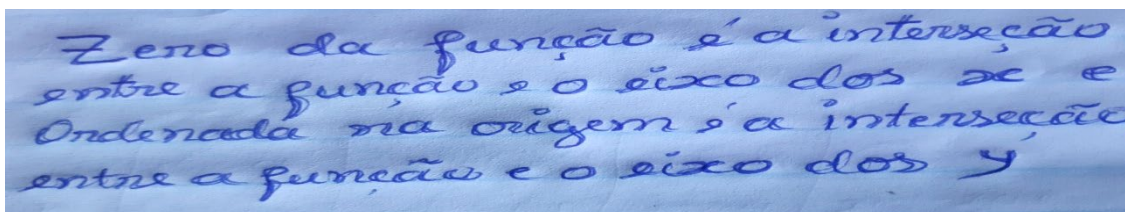 Zero da função é a interseção
entre a função e o eixo dos x e
Ordenada na origem é a interseção
entre a função e o eixo dos y